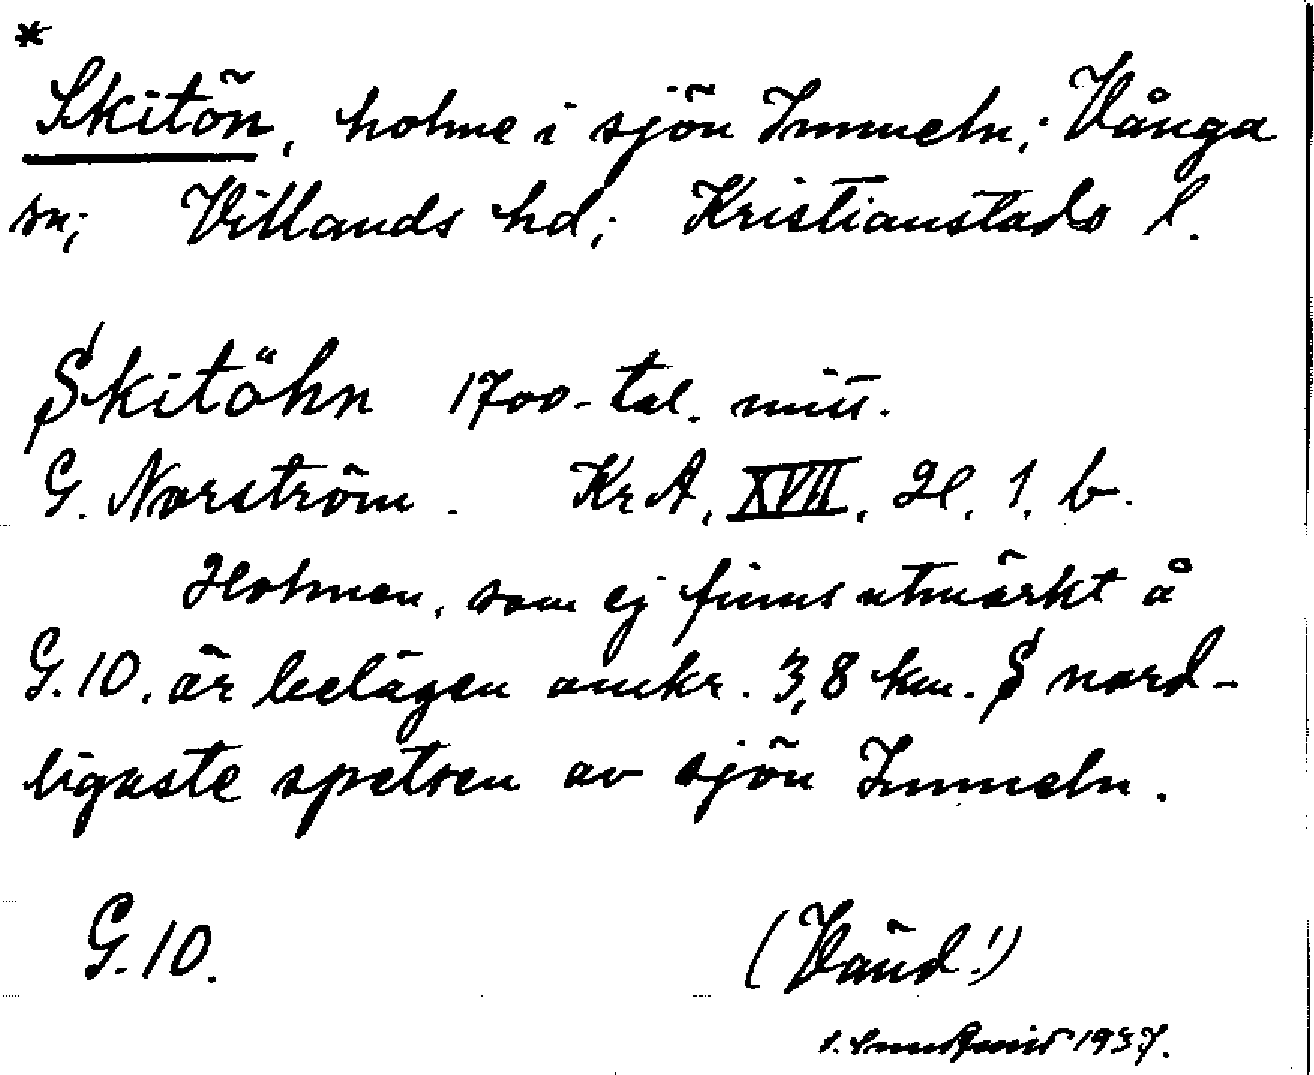 *
Skitön, holme i sjön Immeln; Vånga
sn; Villands hd; Kristianstads l.
Skitöhn 1700-tal. mitt.
G. Norström. KrA, XVII, Hl. 1. b.
Holmen, som ej finns utmärkt å
G.10. är belägen omkr. 3,8 km. S nord-
ligaste spetsen av sjön Immeln.
G.10. (Vänd!)
1937.